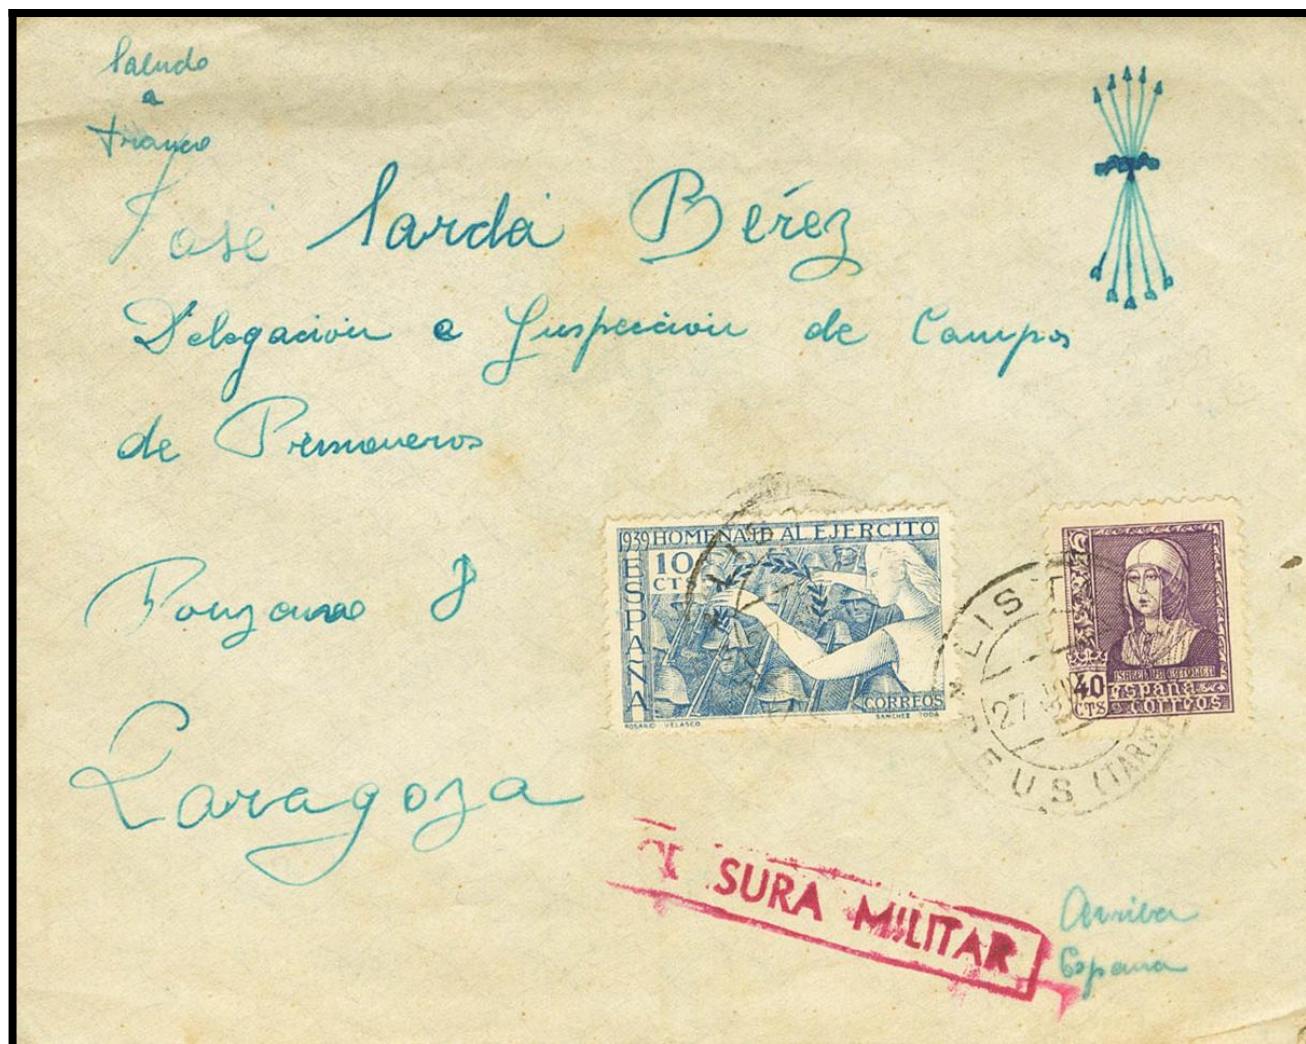 Saludo
a
Franco
José Sardá Bérez
Delegación e Inspeccion de Campos
de Prisioneros
8
Zaragoza
1939 HOMENAJE AL EJERCITO
10
CTS
ESPAÑA
CORREOS
ROSARIO VELASCO
SANCHEZ TODA
ISABEL LA CATOLICA
40
CTS
España
CORREOS
LISTA
27
REUS (TARR
SURA MILITAR
Arriba
España